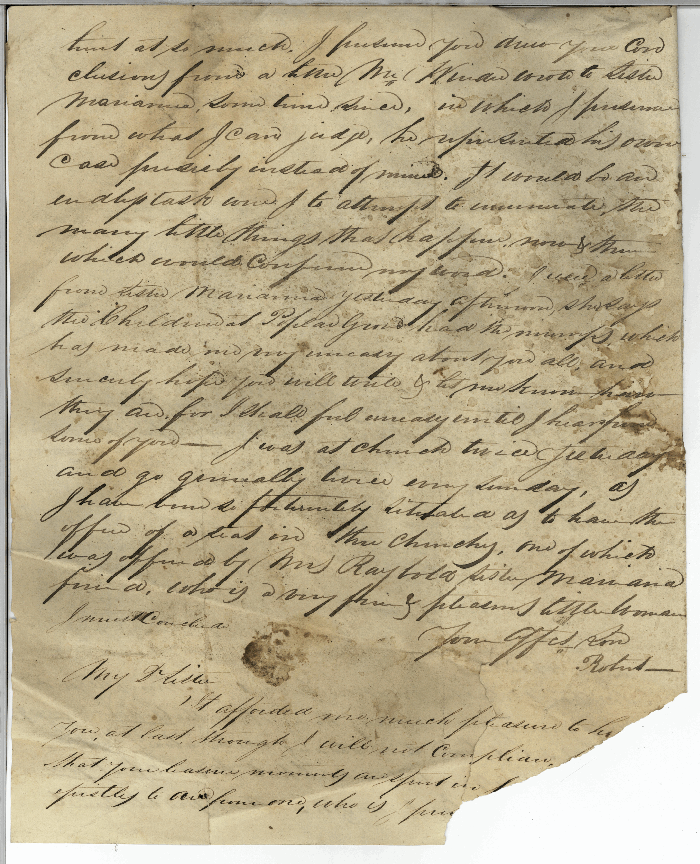 hint at so much. I presume you drew your Con
clusions from a letter Mr Winder wrote to Sister
Marianna, some time since, in which I presume
from what I can judge, he represented his own
Case precisely instead of mine. It would be an
endless task were I to attempt to enumerate, the
many little things that happen, now & then
which would Confirm my word. I recd a letter
from Sister Marianna yesterday afternoon she says
the Children at Poplar Grove had the mumps, which
has made me very uneasy about you all, and
sincerely hope you will write & let me know how
they are, for I shall feel uneasy until I hear from
some of you— I was at church twice yesterday
and go generally twice every Sunday, as
I have been so fortunately situated as to have the
offer of a seat in three churches, one of which
was offered by Mrs Raybold, Sister Mariana
friend, who is a very fine & pleasant little Woman
I must Conclude
Your Affect Son
Robert—
My Dr Sister
It afforded me much pleasure to
you, at last, though I will not Complian,
that your leasure moments are spent in
epistles to one, who is